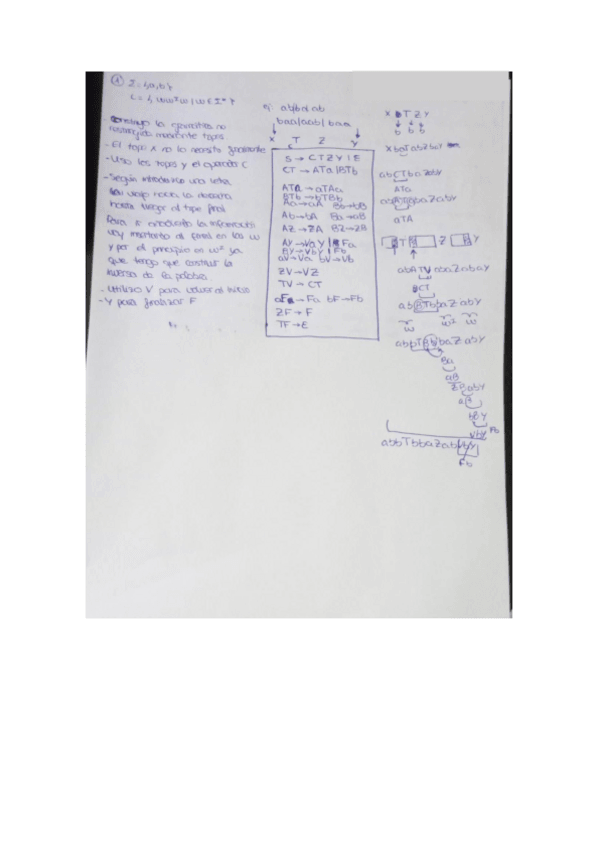 ① Σ = {a,b}
L = { ww^Iw / w ∈ Σ* }
Construyo la gramática no
restringida mediante topes
- El tope X no lo necesito finalmente
- Uso los topos y el operador C
- Según introduzco una letra
viajo hacia la derecha
hasta llegar al tope final
y por el principio en
que tengo que construir la
inversa de la palabra
- Utilizo V para volver al inicio
- Y para finalizar F
ej: ab/ba/ab
baa/aab/baa
X T Z Y
S → CTZY | E
CT → ATa | BTb
ATa → aTAa
BTb → bTBb
Aa → aA Bb → bB
Ab → bA Ba → aB
AZ → ZA BZ → ZB
AY → VaY | Fa
BY → VbY | Fb
aV → Va bV → Vb
ZV → VZ
TV → CT
aF → Fa bF → Fb
ZF → F
TF → E
X T Z Y
b b b
XbaTabZbaY
abCTbaZabY
ATa
aTA
T Z Y
abATV abaZabaY
BCT
abBTbbaZabY
w w^I w
abbTBbbaZabY
Ba
aB
ZBabY
aB
bBY
VbY Fb
abbTbbaZabVbY
Fb